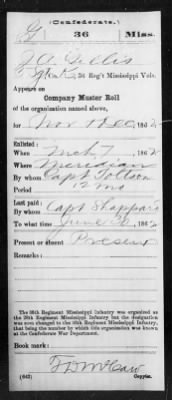 (Confederate.)
G 36 Miss.
J. A. Gillis
Co. K, 36 Reg't Mississippi Vols.
Appears on
Company Muster Roll
of the organization named above,
for Nov & Dec, 1862
Enlisted:
When Mch 7, 1862
Where Meridian
By whom Capt
Period 12 mo
Last paid:
By whom Capt Sheppard
To what time June 30, 1862
Present or absent Present
Remarks:
The 36th Regiment Mississippi Infantry was organized as
the 36th Regiment Mississippi Infantry but the designation
was changed to the 36th Regiment Mississippi Infantry,
that being the number by which this organization was known at
the Confederate War Department.
Book mark:
(642)
Copyist.